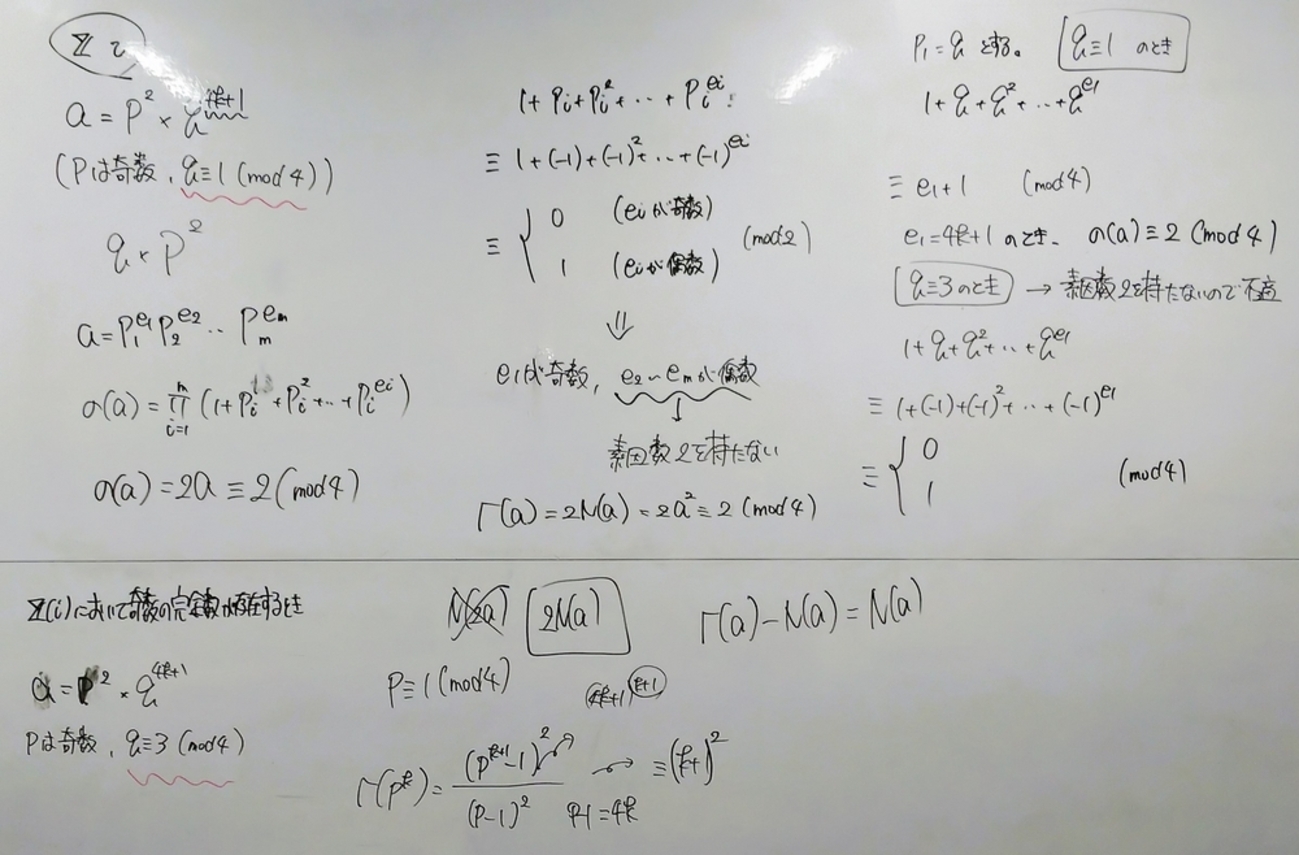 ℤで
a = P² × q^{4k+1}
(Pは奇数, q≡1 (mod 4))
q × P²
a = P₁^{e₁} P₂^{e₂} ‥ P_m^{e_m}
σ(a) = ∏_{i=1}^{m} (1+P_i+P_i²+‥+P_i^{e_i})
σ(a) = 2a ≡ 2 (mod 4)
1+P_i+P_i²+‥+P_i^{e_i}
≡ 1+(-1)+(-1)²+‥+(-1)^{e_i}
≡ { 0 (e_iが奇数)
1 (e_iが偶数) (mod 2)
⇓
e₁が奇数, e₂〜e_mが偶数
↓
素因数2を持たない
Γ(a) = 2N(a) = 2a² ≡ 2 (mod 4)
P₁=q とする。 q≡1 のとき
1+q+q²+‥+q^{e₁}
≡ e₁+1 (mod 4)
e₁=4k+1 のとき、 σ(a)≡2 (mod 4)
q≡3のとき → 素因数2を持たないので不適
1+q+q²+‥+q^{e₁}
≡ 1+(-1)+(-1)²+‥+(-1)^{e₁}
≡ { 0
1 (mod 4)
ℤ(i)において奇数の完全数が存在するとき
a = P² × q^{4k+1}
Pは奇数, q≡3 (mod 4)
N(2a) 2N(a) Γ(a)-N(a) = N(a)
P≡1 (mod 4) (4k+1)^{k+1}
Γ(p^k) = (P^{k+1}-1)² / (P-1)² ≡ (k+1)²
P-1=4k